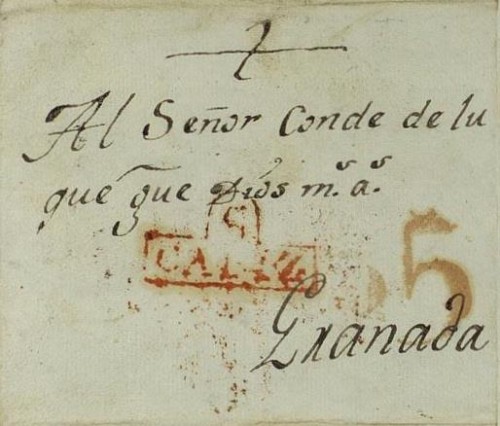 Al Señor Conde de lu
que gue Dios m.s a.s
S
CADIZ
5
Granada